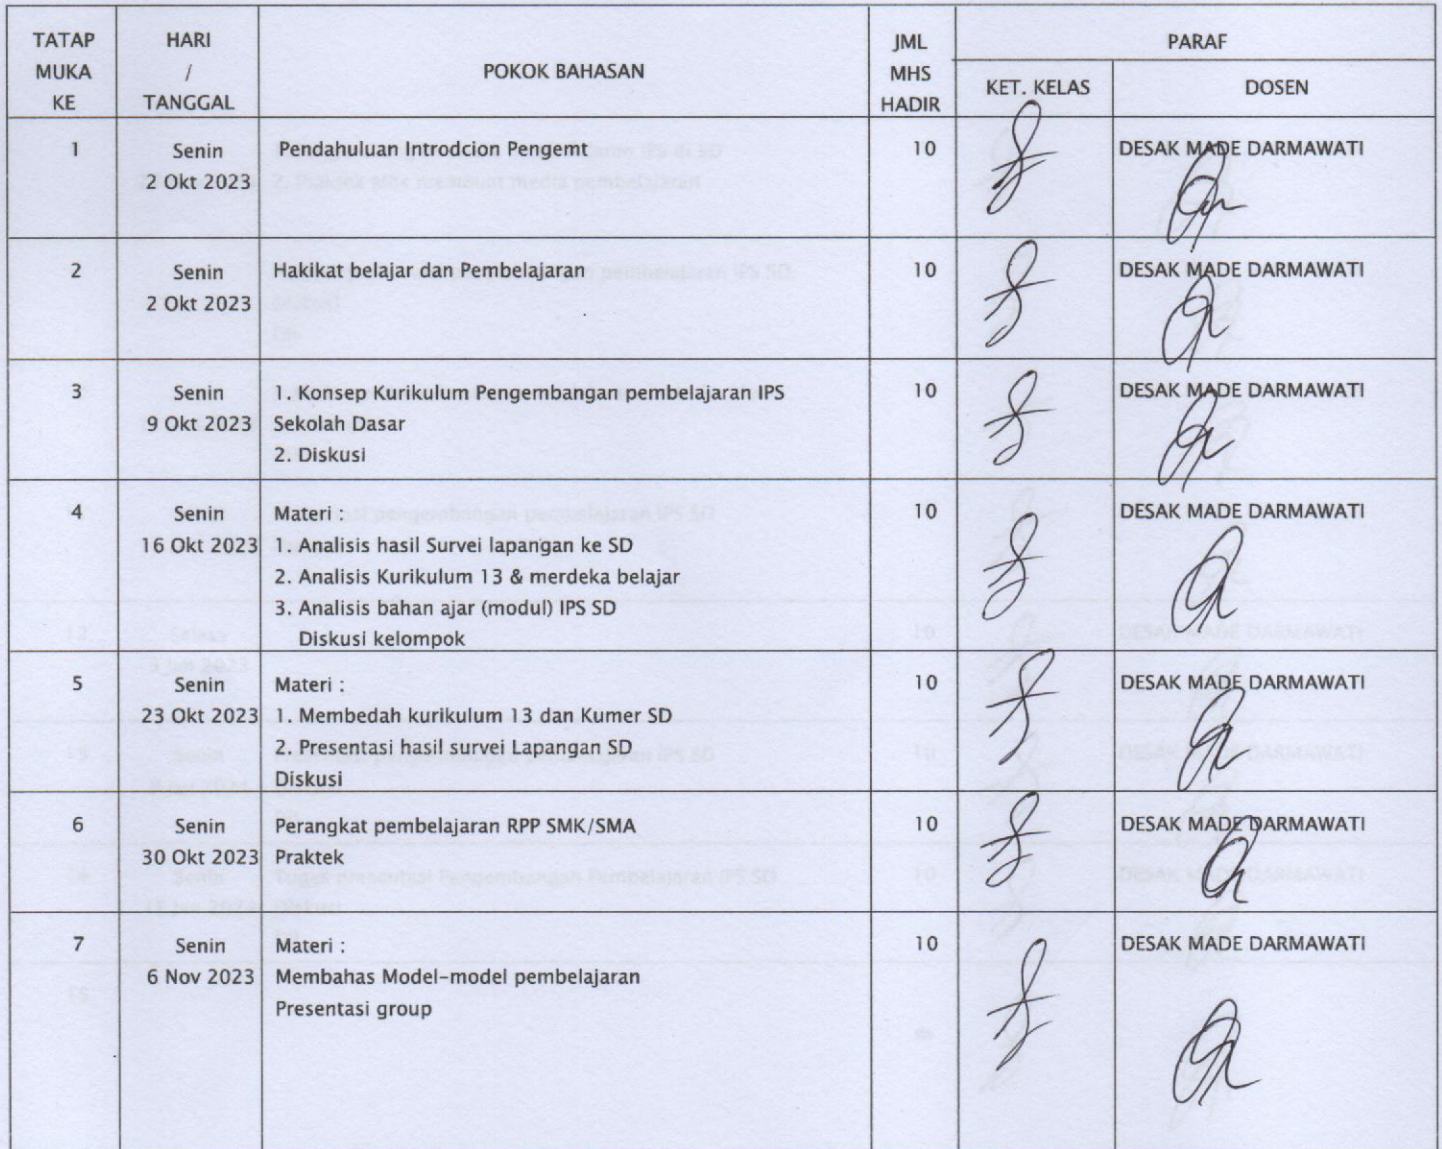 TATAP MUKA KE
HARI / TANGGAL
POKOK BAHASAN
JML MHS HADIR
PARAF
KET. KELAS
DOSEN
1
Senin
2 Okt 2023
Pendahuluan Introdcion Pengemt
10
DESAK MADE DARMAWATI
2
Senin
2 Okt 2023
Hakikat belajar dan Pembelajaran
10
DESAK MADE DARMAWATI
3
Senin
9 Okt 2023
1. Konsep Kurikulum Pengembangan pembelajaran IPS
Sekolah Dasar
2. Diskusi
10
DESAK MADE DARMAWATI
4
Senin
16 Okt 2023
Materi :
1. Analisis hasil Survei lapangan ke SD
2. Analisis Kurikulum 13 & merdeka belajar
3. Analisis bahan ajar (modul) IPS SD
Diskusi kelompok
10
DESAK MADE DARMAWATI
5
Senin
23 Okt 2023
Materi :
1. Membedah kurikulum 13 dan Kumer SD
2. Presentasi hasil survei Lapangan SD
Diskusi
10
DESAK MADE DARMAWATI
6
Senin
30 Okt 2023
Perangkat pembelajaran RPP SMK/SMA
Praktek
10
DESAK MADE DARMAWATI
7
Senin
6 Nov 2023
Materi :
Membahas Model-model pembelajaran
Presentasi group
10
DESAK MADE DARMAWATI